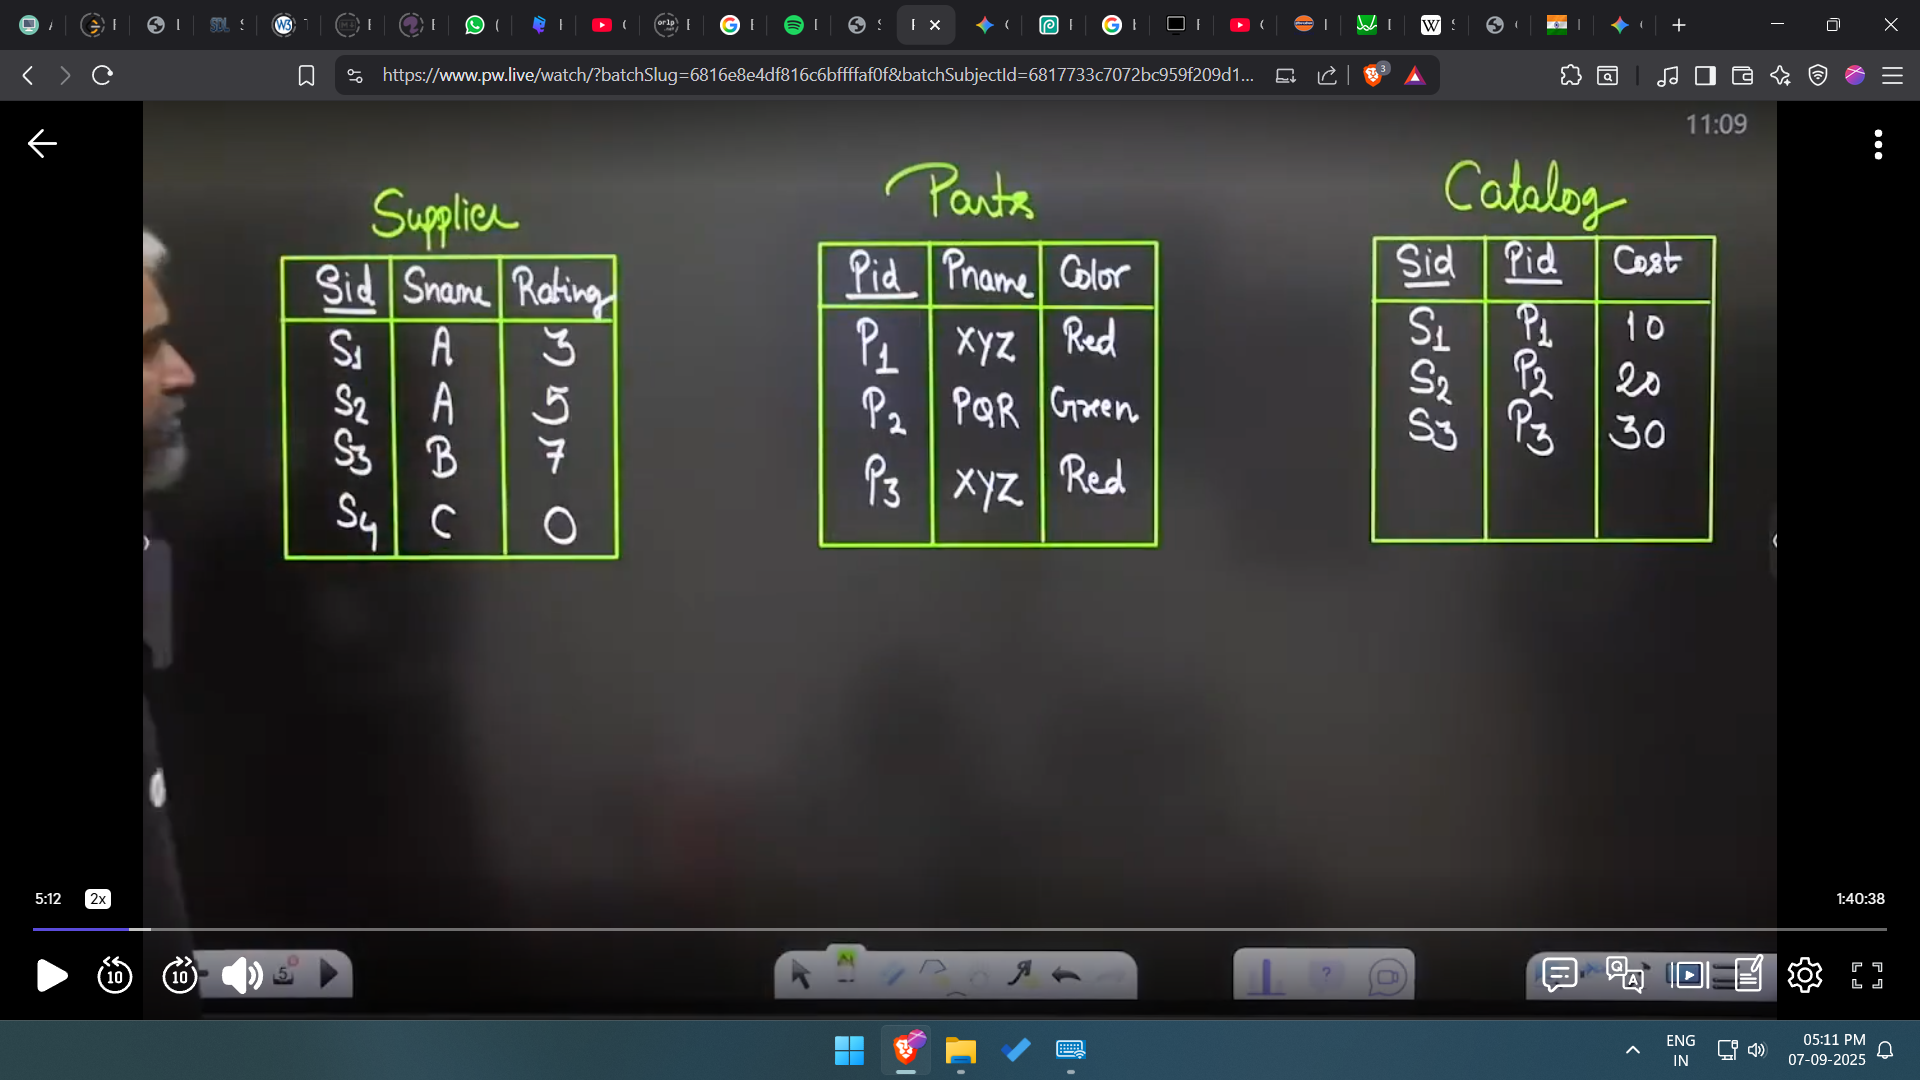 https://www.pw.live/watch/?batchSlug=6816e8e4df816c6bffffaf0f&batchSubjectId=6817733c7072bc959f209d1...
3
11:09
Supplier
Sid Sname Rating
S1 A 3
S2 A 5
S3 B 7
S4 C 0
Parts
Pid Pname Color
P1 XYZ Red
P2 PQR Green
P3 XYZ Red
Catalog
Sid Pid Cost
S1 P1 10
S2 P2 20
S3 P3 30
5:12 2x 1:40:38
10 10
ENG
IN
05:11 PM
07-09-2025